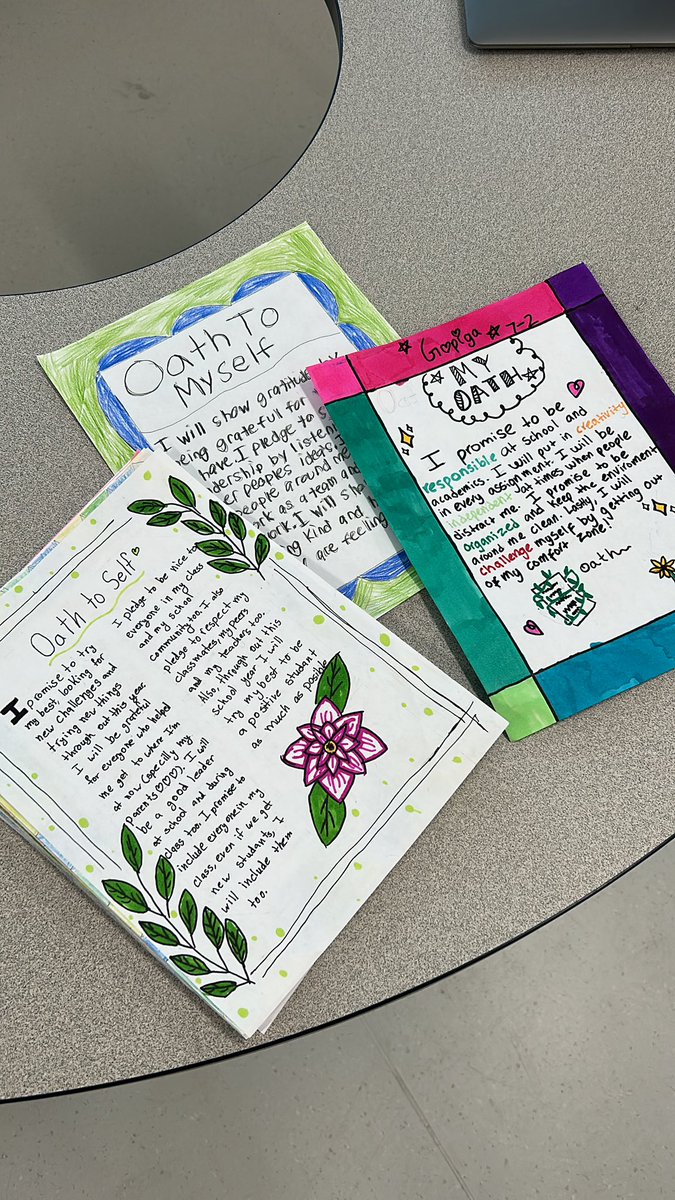 Oath To
Myself
I will show gratitude by
being grateful for
have. I pledge to s
dership by listeni
er peoples ideas. I
people around me
rk as a team and
work. I will show
ng kind and
are feelin
☆ Gopiga ☆ 7-2
MY
OATH
I promise to be
responsible at school and
academics. I will put in creativity
in every assignment. I will be
independent at times when people
distract me. I promise to be
organized and keep the enviroment
around me clean. Lastly, I will
challenge myself by getting out
of my comfort zone!
oath
Oath to Self
I promise to try
my best, looking for
new challenges and
trying new things
through out this year.
I will be grateful
for everyone who helped
me get to where I'm
at now (opecilly my
parents♡♡♡♡). I will
be a good leader
at school and during
class too. I promise to
include everyone in my
class, even if we get
new students, I
will include them
too.
I pledge to be nice to
everyone in my class
and my school
community too. I also
pledge to respect my
classmates, my peers
and my teachers too.
Also, through out this
school year I will
try my best to be
a positive student
as much as posible